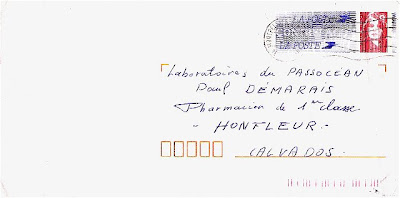 LA POSTE
LA POSTE
Laboratoires du PASSOCÉAN
Paul DÉMARAIS
Pharmacien de 1ère classe
- HONFLEUR -
CALVADOS.